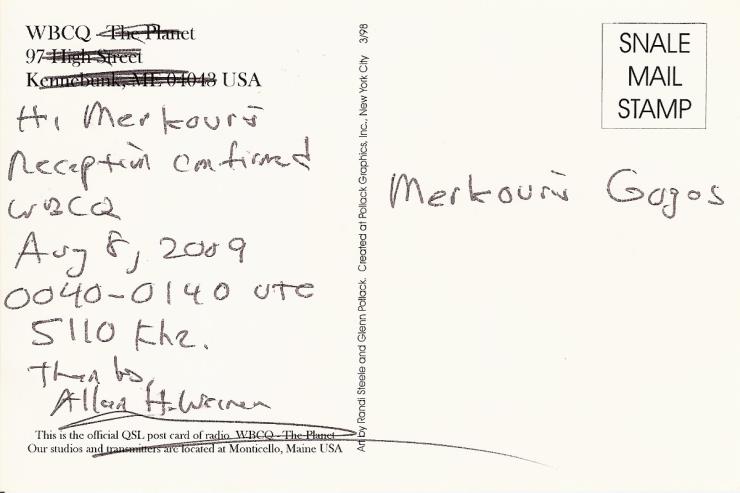 WBCQ - The Planet
97 High Street
Kennebunk, ME 04043 USA
Hi Merkouris
Reception confirmed
WBCQ
Aug 8, 2009
0040-0140 UTC
5110 Khz.
Thanks,
Allan H. Weiner
This is the official QSL post card of radio WBCQ - The Planet
Our studios and transmitters are located at Monticello, Maine USA
Art by Randi Steele and Glenn Pollack. Created at Pollack Graphics, Inc., New York City 3/98
SNALE
MAIL
STAMP
Merkouris Gogos